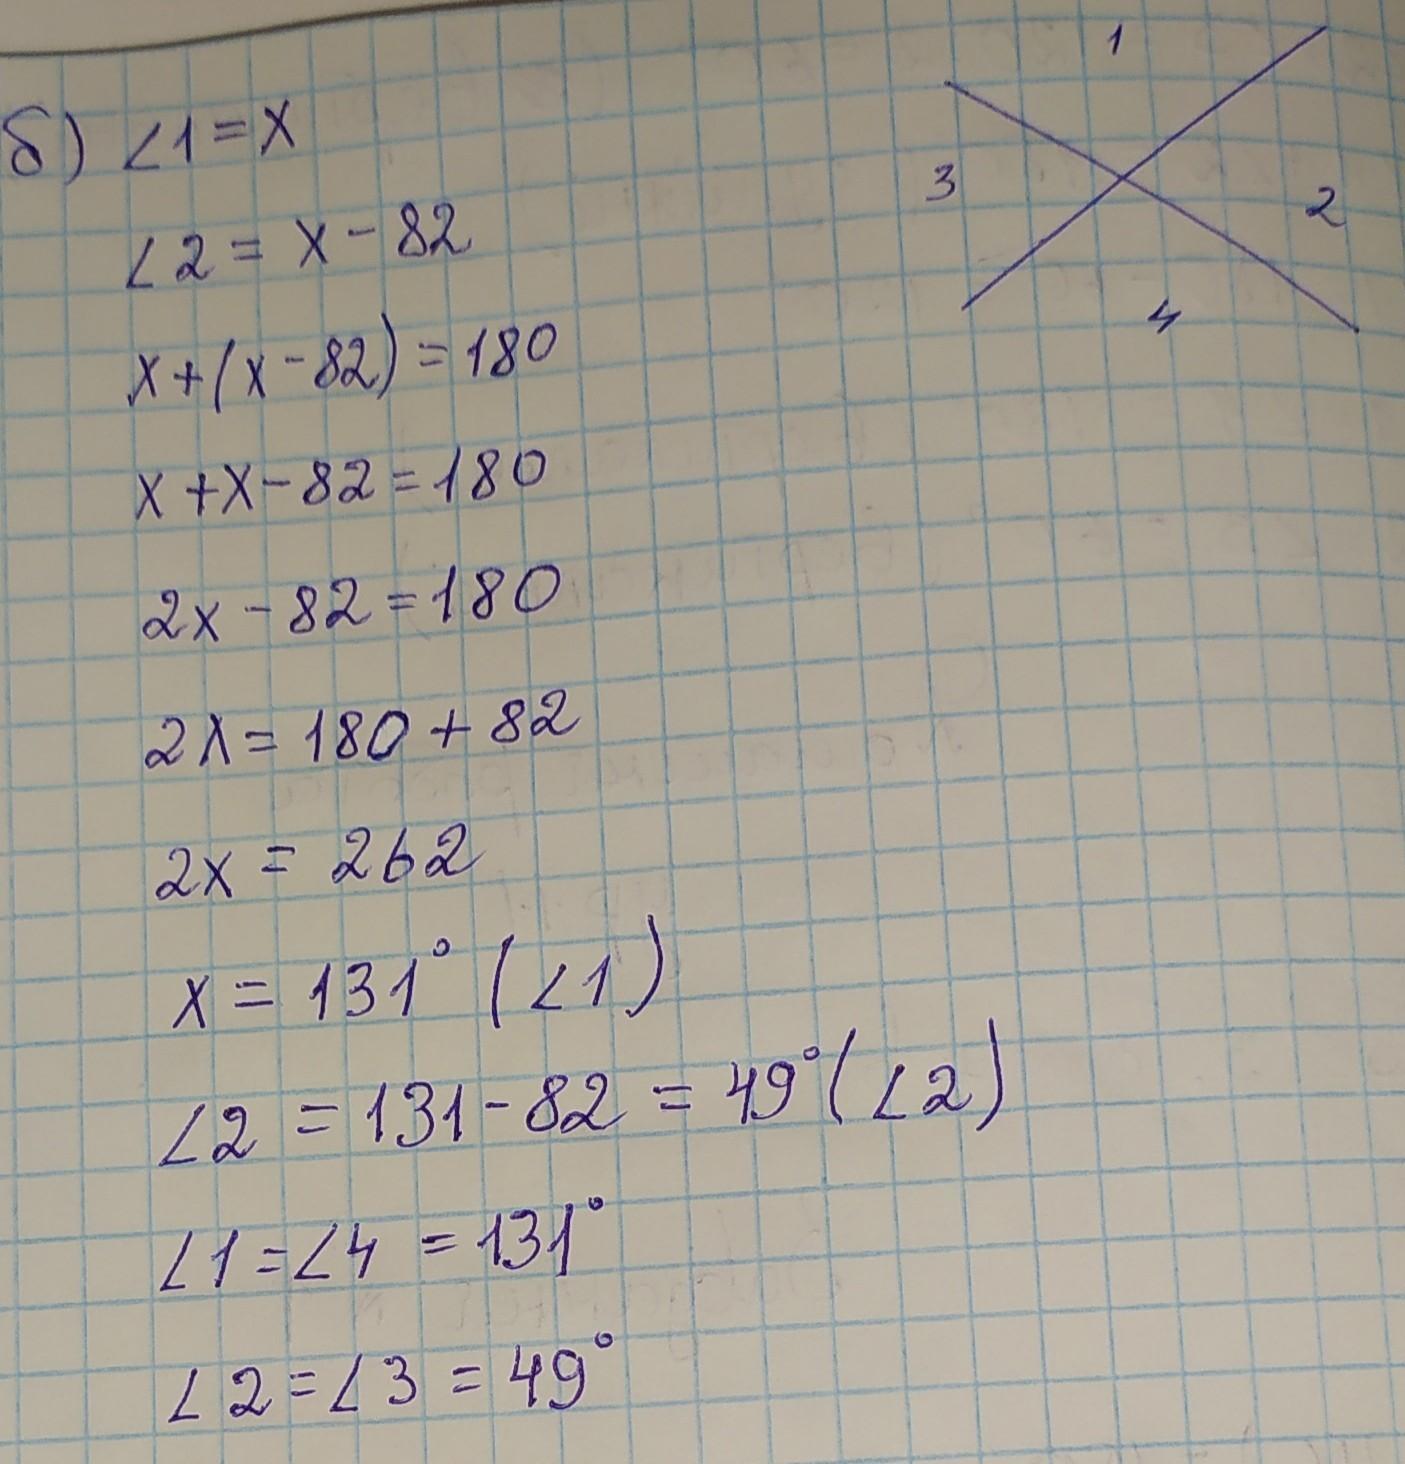 б) ∠1 = x
∠2 = x - 82
x + (x - 82) = 180
x + x - 82 = 180
2x - 82 = 180
2x = 180 + 82
2x = 262
x = 131° (∠1)
∠2 = 131 - 82 = 49° (∠2)
∠1 = ∠4 = 131°
∠2 = ∠3 = 49°
1
3
2
4